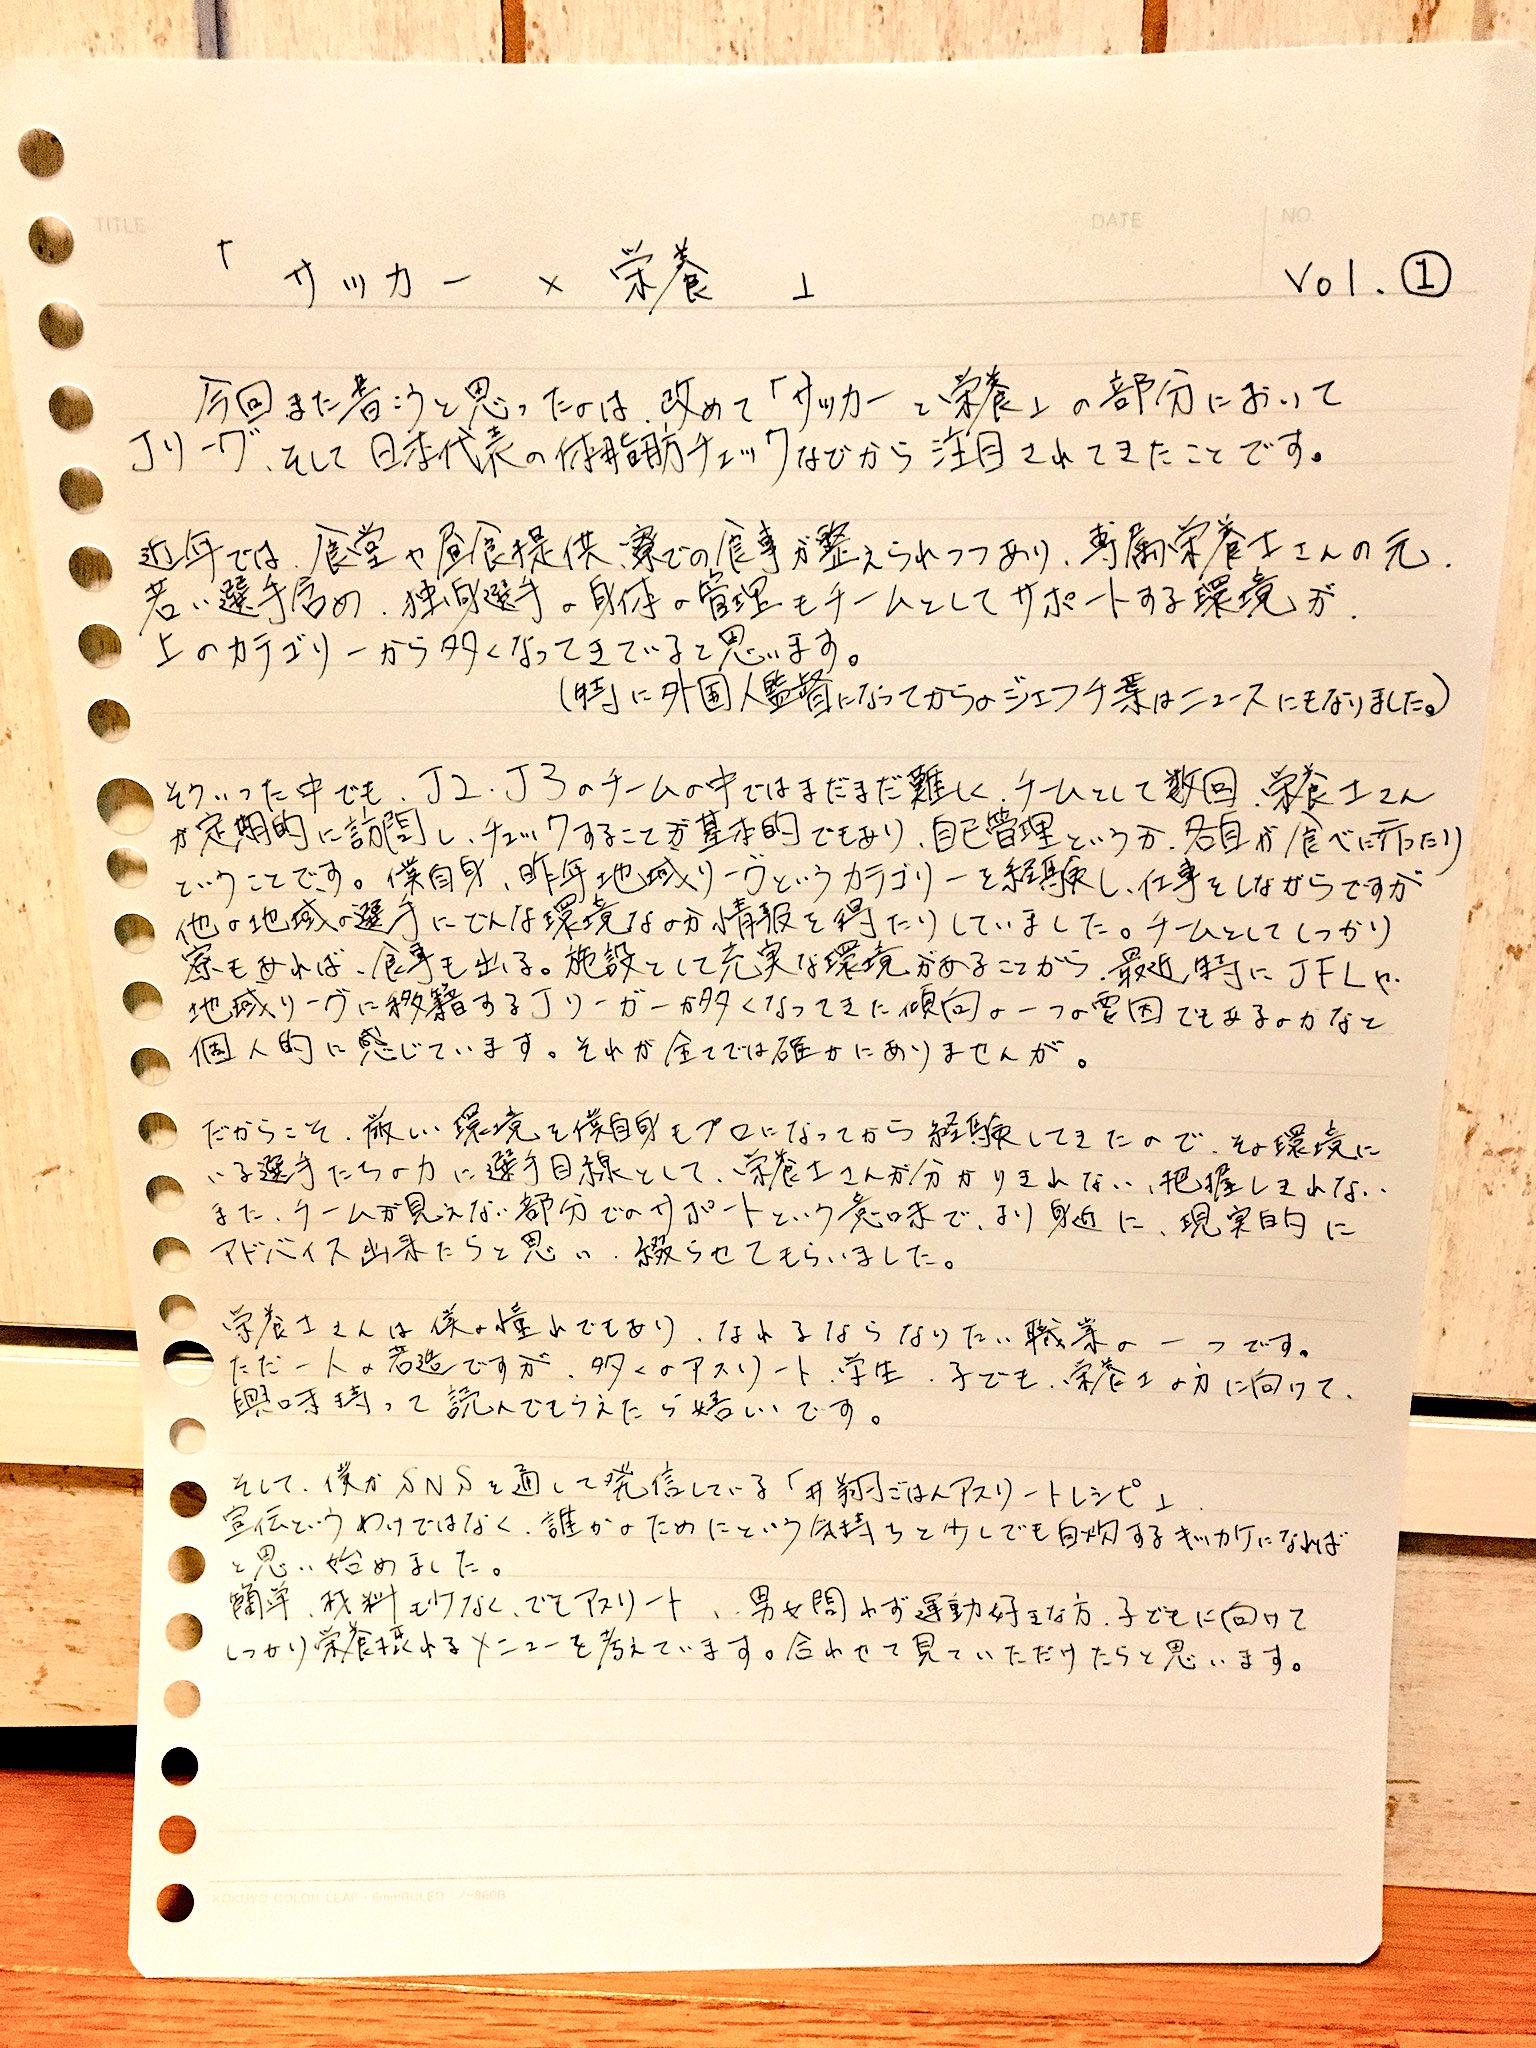 TITLE
DATE
NO.
「サッカー × 栄養」
Vol. ①
今回また書こうと思ったのは、改めて「サッカーと栄養」の部分において
Jリーグ、そして日本代表の体脂肪チェックなどから注目されてきたことです。
近年では、食堂や昼食提供、寮での食事が整えられつつあり、専属栄養士さんの元、
若い選手含め、独身選手の身体の管理もチームとしてサポートする環境が、
上のカテゴリーから多くなってきていると思います。
(特に外国人監督になってからのジェフ千葉はニュースにもなりました。)
そういった中でも、J2、J3のチームの中ではまだまだ難しく、チームとして数回、栄養士さん
が定期的に訪問し、チェックすることが基本的でもあり、自己管理というか、各自が食べに行ったり
ということです。僕自身、昨年地域リーグというカテゴリーを経験し、仕事をしながらですが
他の地域の選手にどんな環境なのか情報を得たりしていました。チームとしてしっかり
寮もあれば、食事も出る。施設として充実な環境があることから、最近特にJFLや、
地域リーグに移籍するJリーガーが多くなってきた傾向の一つの要因でもあるのかなと
個人的に感じています。それが全てでは確かにありませんが。
だからこそ、厳しい環境を僕自身もプロになってから経験してきたので、その環境に
いる選手たちの力に選手目線として、栄養士さんが分かりきれない、把握しきれない、
また、チームが見えない部分でのサポートという意味で、より身近に、現実的に
アドバイス出来たらと思い、綴らせてもらいました。
栄養士さんは僕の憧れでもあり、なれるならなりたい職業の一つです。
ただ一人の若造ですが、多くのアスリート、学生、子ども、栄養士の方に向けて、
興味持って読んでもらえたら嬉しいです。
そして、僕がSNSを通して発信している「#翔ごはんアスリートレシピ」、
宣伝というわけではなく、誰かのためにという気持ちと少しでも自炊するキッカケになれば
と思い始めました。
簡単、材料も少なく、でもアスリート、男女問わず運動好きな方、子どもに向けて
しっかり栄養摂れるメニューを考えています。合わせて見ていただけたらと思います。
KOKUYO COLOR LEAF・6mmRULED